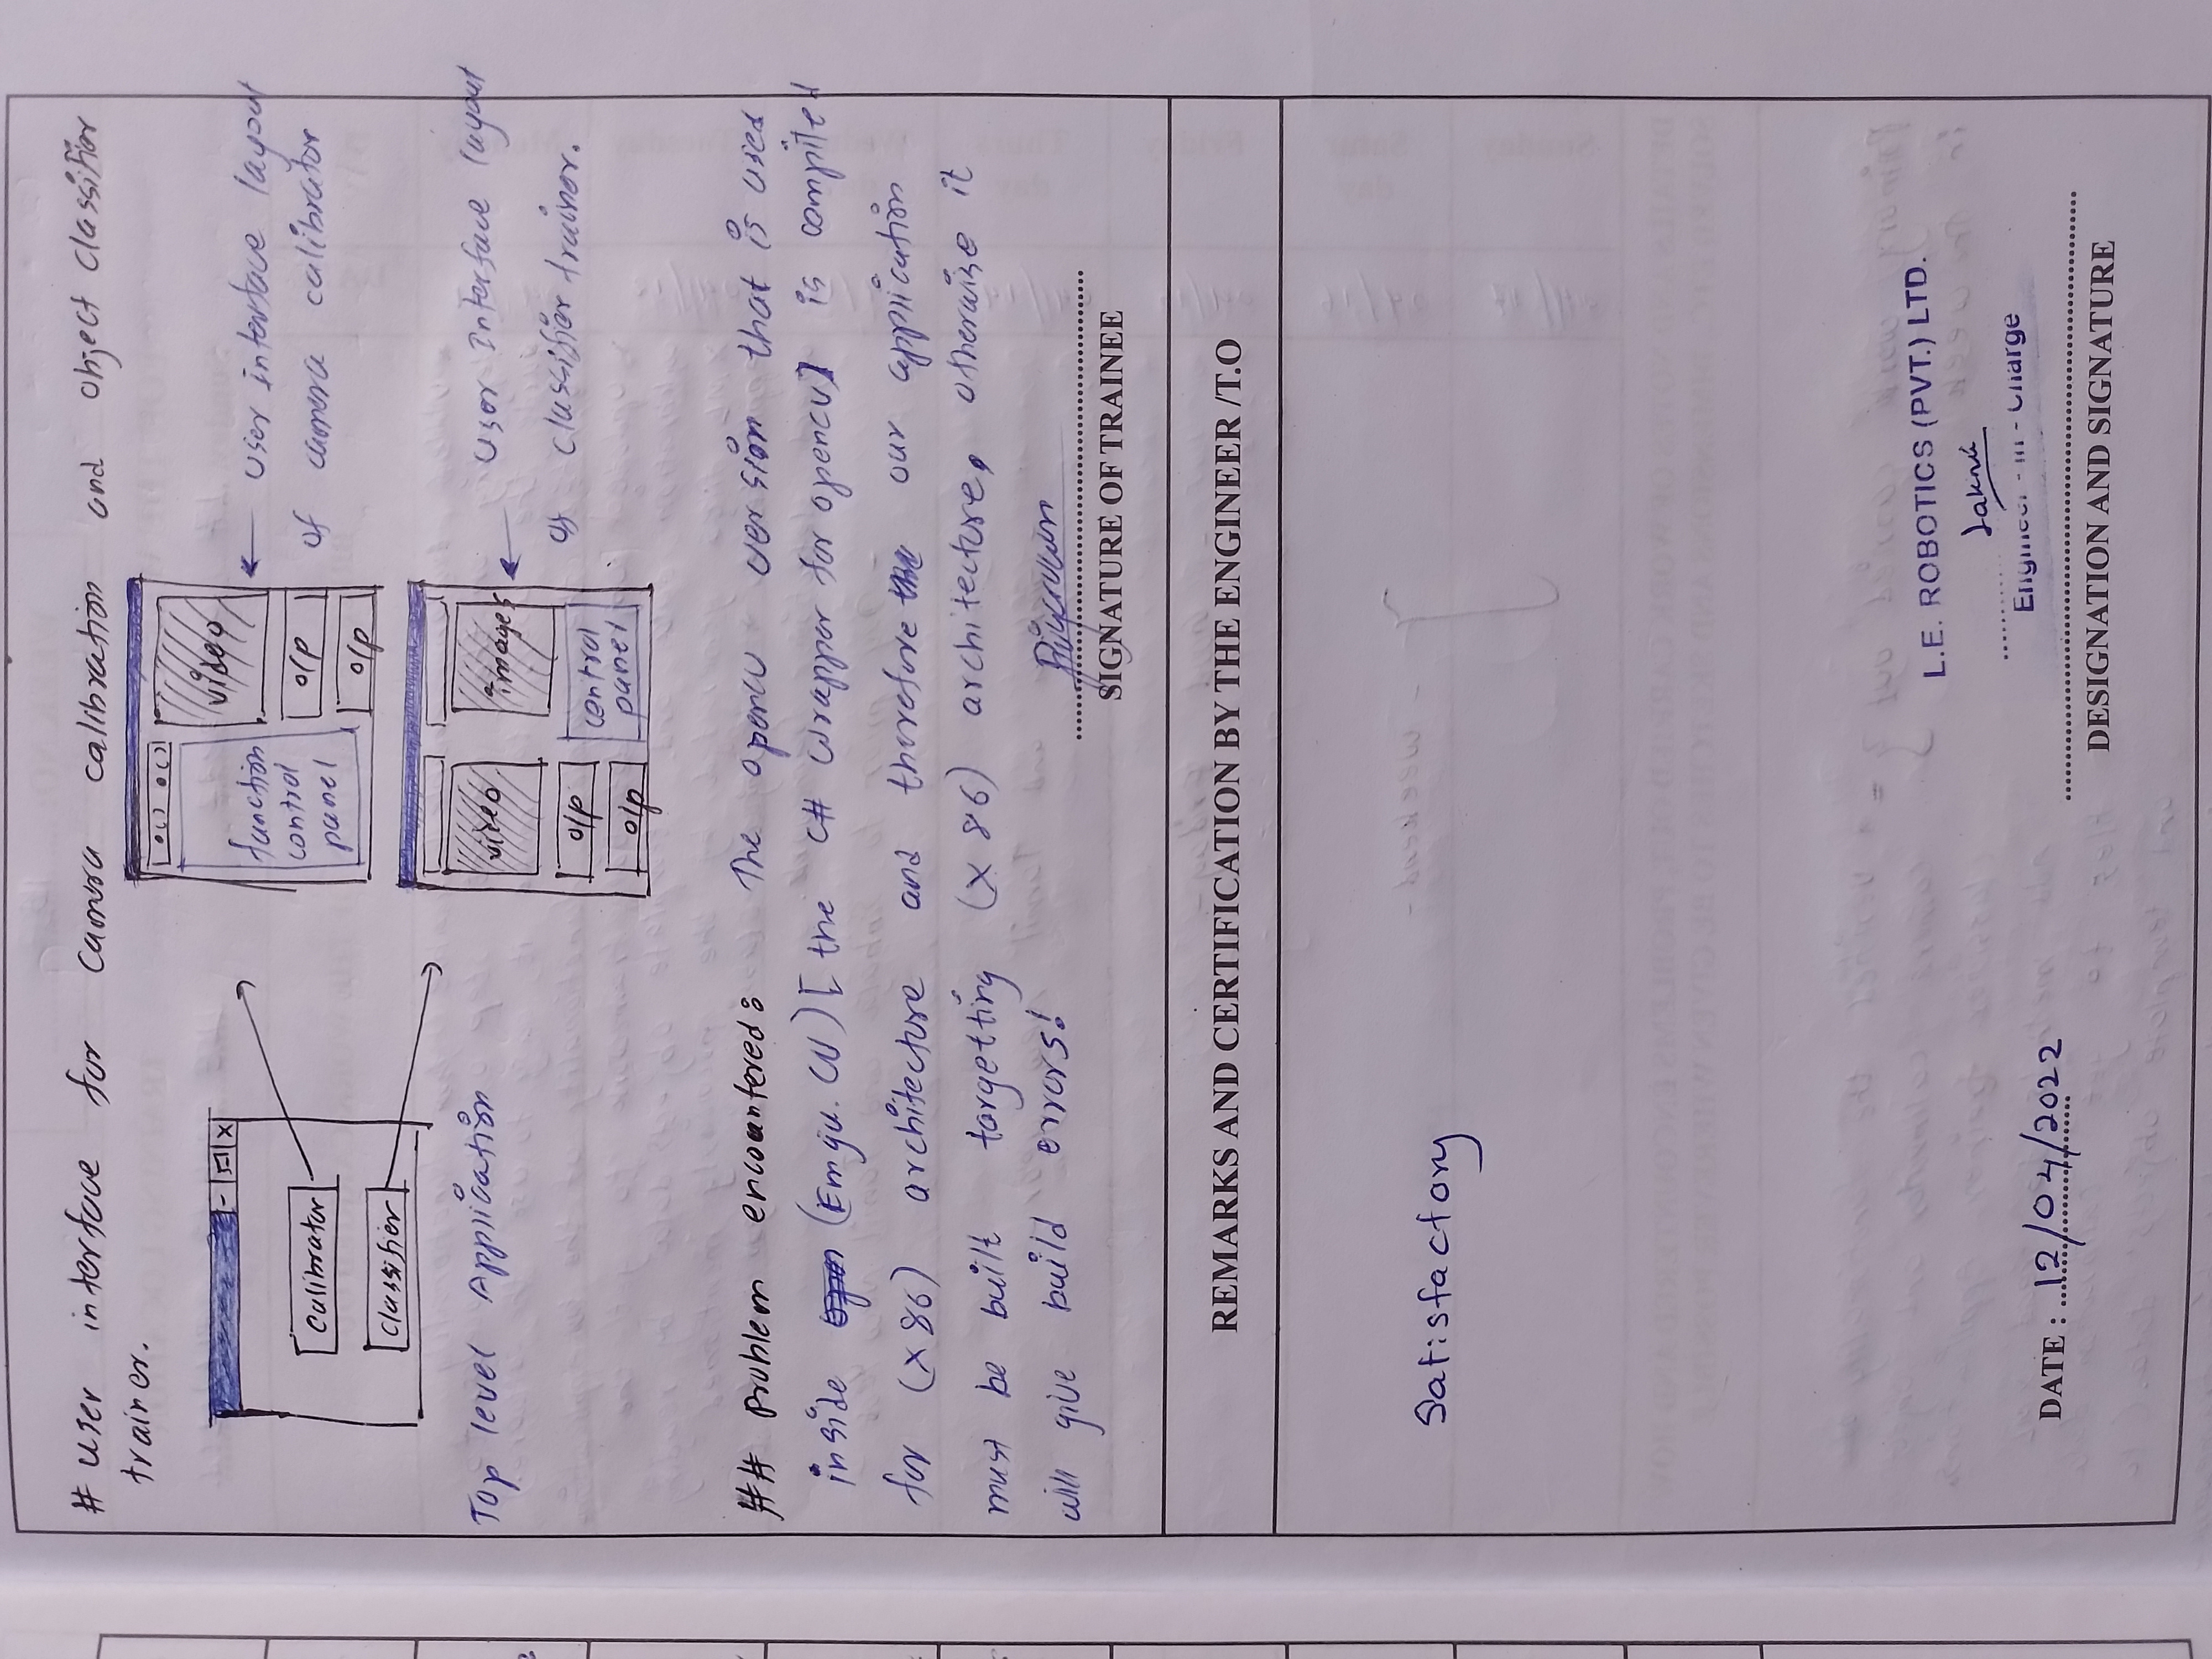 # User interface for camera calibration and object classifier
trainer.
- X
Calibrator
Classifier
Top level Application
video
function
control
panel
o/p
o/p
User interface layout
of camera calibrator
video
images
o/p
o/p
control
panel
User Interface layout
of classifier trainer.
## Problem encountered: The opencv version that is used
inside (Emgu. CV) [the C# wrapper for opencv] is compiled
for (x86) architecture and therefore our application
must be built targetting (x 86) architecture, otherwise it
will give build errors!
SIGNATURE OF TRAINEE
REMARKS AND CERTIFICATION BY THE ENGINEER /T.O
Satisfactory
L.E. ROBOTICS (PVT.) LTD.
Engineer - In - Charge
DATE : 12/04/2022
DESIGNATION AND SIGNATURE